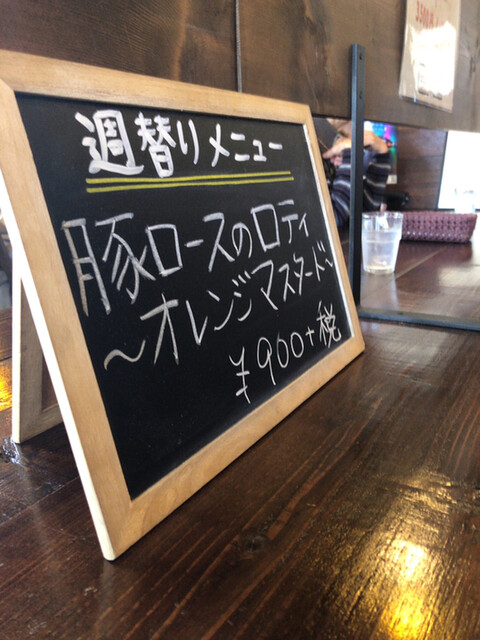 週替りメニュー
豚ロースのロティ
～オレンジマスタード～
¥900+税